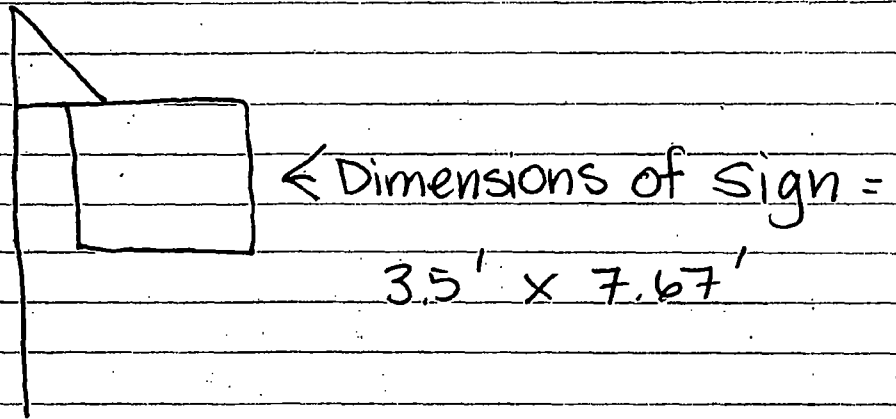 < Dimensions of Sign =
3.5' x 7.67'